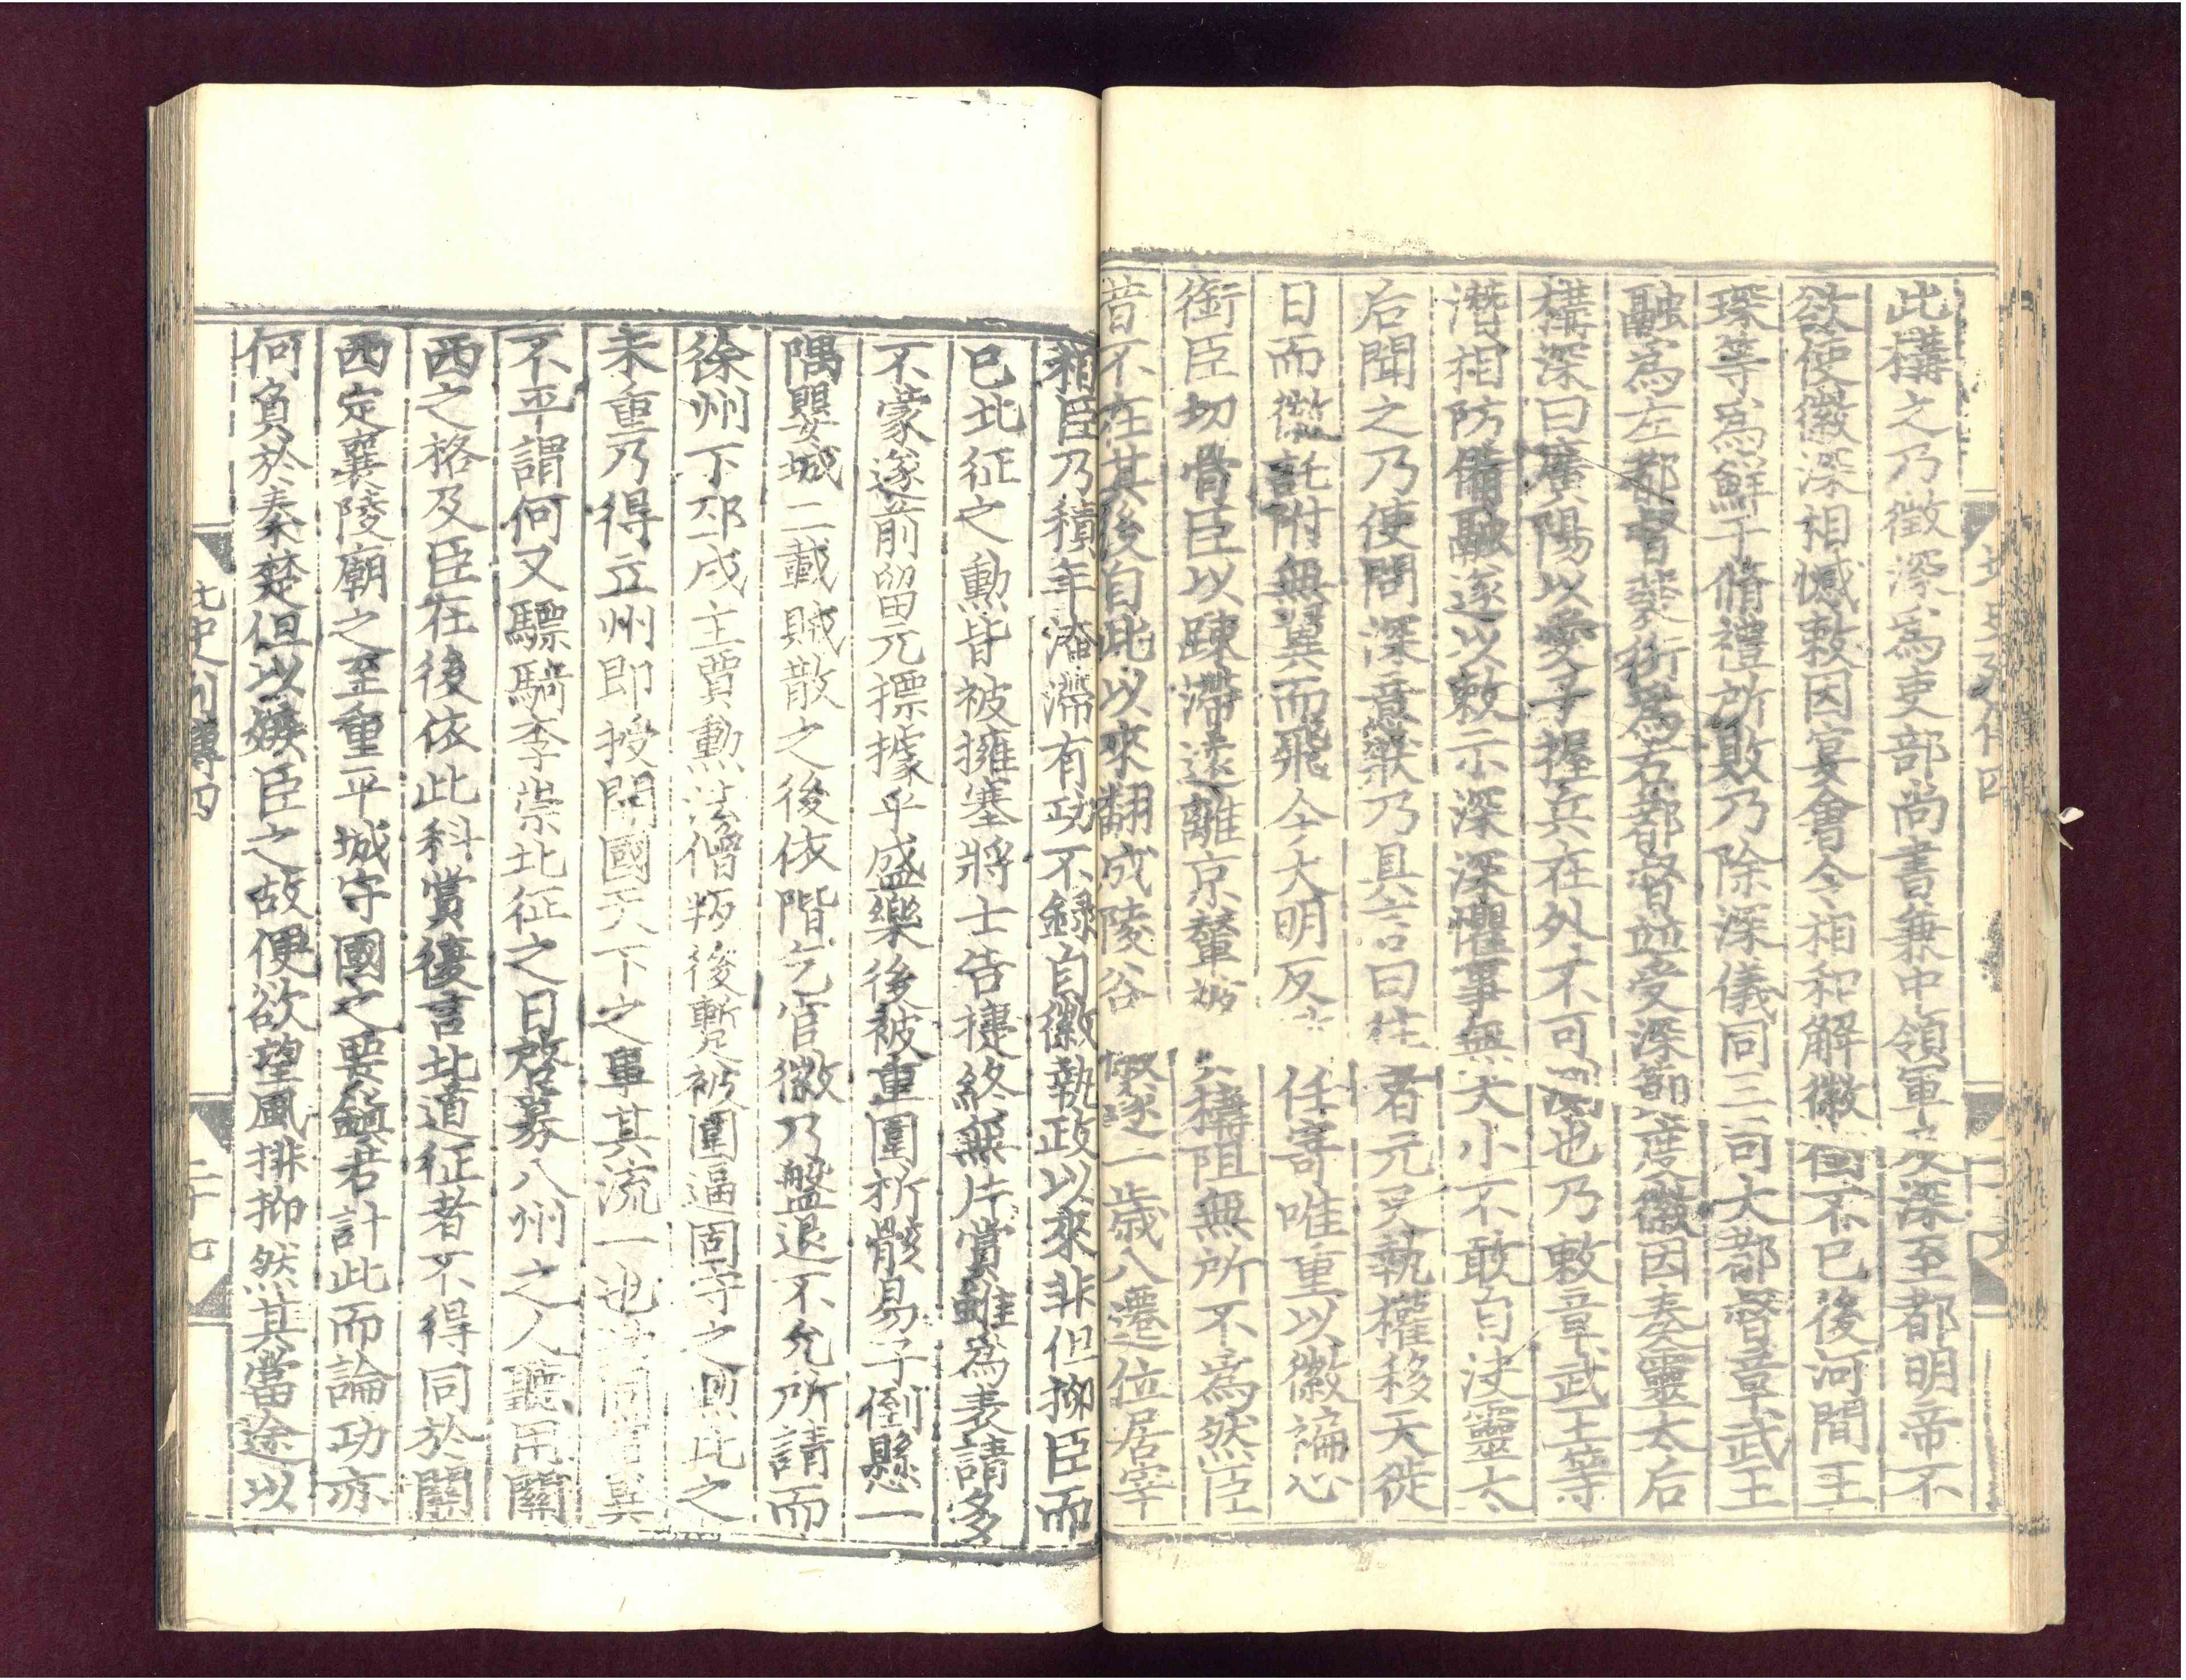 此構之乃徵深爲吏部尚書兼中領軍及深至都明帝不
欲使徽深相憾敕因宴會令相和解徽銜不已後河間王
琛等爲鮮于脩禮所敗乃除深儀同三司大都督章武王
融爲左都督裴衍爲右都督並受深節度徽因奏靈太后
構深曰廣陽以愛子握兵在外不可測也乃敕章武王等
潛相防備融遂以敕示深深懼事無大小不敢自決靈太
后聞之乃使問深意狀乃具言曰往者元叉執權移天徙
日而徽託附無翼而飛今大明反任寄唯重以徽褊心
銜臣切骨臣以疎滯遠離京輦被構阻無所不爲然臣
昔不在其後自此以來翻成陵谷徽遂一歲八遷位居宰
相臣乃積年淹滯有功不錄自徽執政以來非但抑臣而
已北征之勳皆被擁塞將士告捷終無片賞雖爲表請多
不蒙遂前留元摽據乎盛樂後被重圍析骸易子倒懸一
隅嬰城二載賊散之後依階乞官徽乃盤退不允所請而
徐州下邳戍主賈勳法僧叛後暫被圍逼固守之勳比之
未重乃得立州即授開國天下之事其流一也功同賞異
不平謂何又驃騎李崇北征之日啓募八州之人聽用關
西之格及臣在後依此科賞復言北道征者不得同於關
西定襄陵廟之至重平城守國之要鎮若計此而論功亦
何負於秦楚但以嫉臣之故便欲望風排抑然其當途以
北史列傳四
二十七